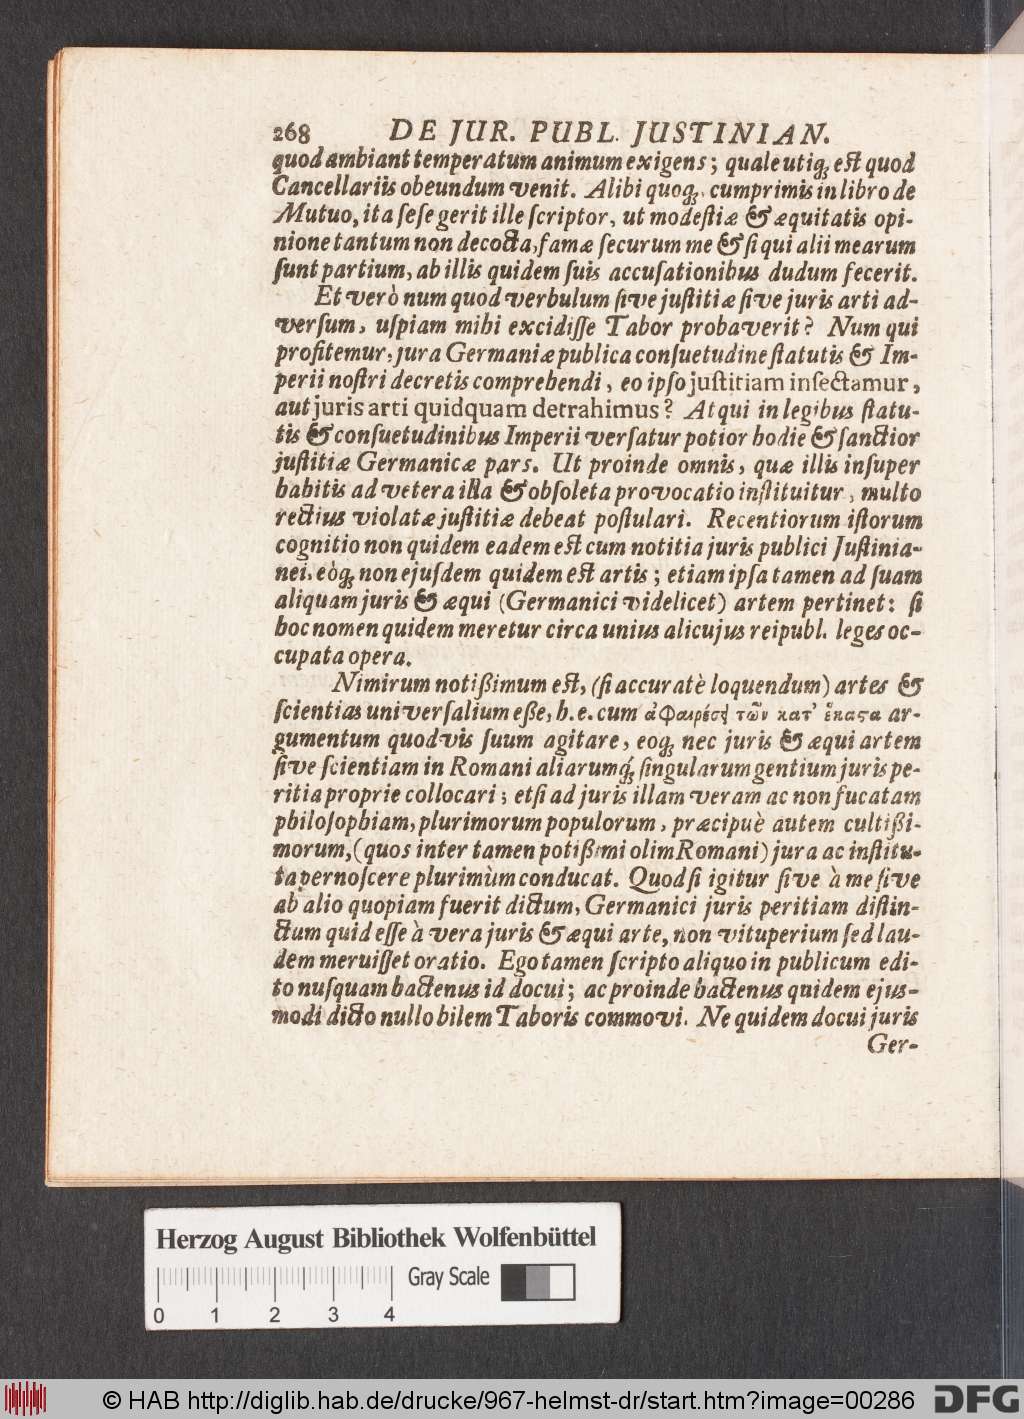 268 DE JUR. PUBL. JUSTINIAN.
quod ambiant temperatum animum exigens; quale utiq; est quod
Cancellariis obeundum venit. Alibi quoq;, cumprimis in libro de
Mutuo, ita ſeſe gerit ille ſcriptor, ut modeſtiæ & æquitatis opi-
nione tantum non decocta, famæ ſecurum me & ſi qui alii mearum
ſunt partium, ab illis quidem ſuis accuſationibus dudum fecerit.
Et verò num quod verbulum ſive juſtitiæ ſive juris arti ad-
verſum, uſpiam mihi excidiſſe Tabor probaverit? Num qui
profitemur, jura Germaniæ publica conſuetudine ſtatutis & Im-
perii noſtri decretis comprehendi, eo ipſo juſtitiam inſectamur,
aut juris arti quidquam detrahimus? Atqui in legibus ſtatu-
tis & conſuetudinibus Imperii verſatur potior hodie & ſanctior
juſtitiæ Germanicæ pars. Ut proinde omnis, quæ illis inſuper
habitis ad vetera illa & obſoleta provocatio inſtituitur, multo
rectius violatæ juſtitiæ debeat poſtulari. Recentiorum iſtorum
cognitio non quidem eadem eſt cum notitia juris publici Juſtinia-
nei, eòq; non ejuſdem quidem eſt artis; etiam ipſa tamen ad ſuam
aliquam juris & æqui (Germanici videlicet) artem pertinet: ſi
hoc nomen quidem meretur circa unius alicujus reipubl. leges oc-
cupata opera.
Nimirum notißimum eſt, (ſi accuratè loquendum) artes &
ſcientias univerſalium eße, h. e. cum ἀφαιρέσει τῶν κατ' ἕκαστα ar-
gumentum quodvis ſuum agitare, eoq; nec juris & æqui artem
ſive ſcientiam in Romani aliarumq́; ſingularum gentium juris pe-
ritia proprie collocari; etſi ad juris illam veram ac non fucatam
philoſophiam, plurimorum populorum, præcipuè autem cultißi-
morum, (quos inter tamen potißimi olim Romani) jura ac inſtitu-
ta pernoſcere plurimùm conducat. Quod ſi igitur ſive à me ſive
ab alio quopiam fuerit dictum, Germanici juris peritiam diſtin-
ctum quid eſſe à vera juris & æqui arte, non vituperium ſed lau-
dem meruiſſet oratio. Ego tamen ſcripto aliquo in publicum edi-
to nuſquam hactenus id docui; ac proinde hactenus quidem ejus-
modi dicto nullo bilem Taboris commovi. Ne quidem docui juris
Ger-
Herzog August Bibliothek Wolfenbüttel
Gray Scale
0 1 2 3 4
© HAB http://diglib.hab.de/drucke/967-helmst-dr/start.htm?image=00286
DFG